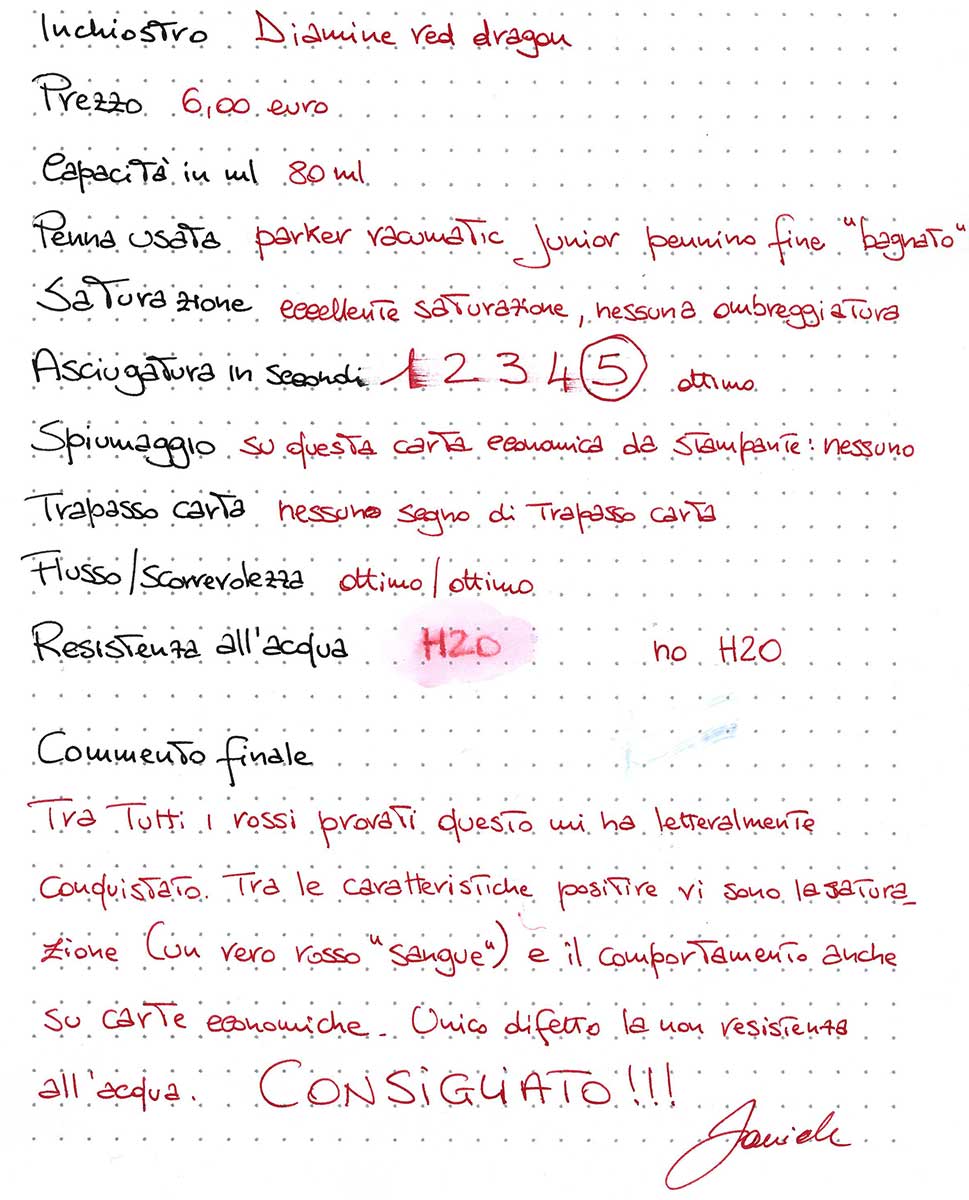 Inchiostro Diamine red dragon
Prezzo 6,00 euro
Capacità in ml 80 ml
Penna usata parker vacumatic Junior pennino fine "bagnato"
Saturazione eccellente saturazione, nessuna ombreggiatura
Asciugatura in secondi 1 2 3 4 5 ottimo
Spiumaggio su questa carta economica da stampante: nessuno
Trapasso carta nessuno segno di trapasso carta
Flusso/scorrevolezza ottimo/ottimo
Resistenza all'acqua H2O no H2O
Commento finale
Tra tutti i rossi provati questo mi ha letteralmente
conquistato. Tra le caratteristiche positive vi sono la satura_
zione (un vero rosso "sangue") e il comportamento anche
su carte economiche. Unico difetto la non resistenza
all'acqua. CONSIGLIATO!!!
Daniele